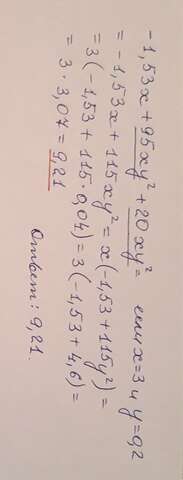 -1,53x + 95xy² + 20xy² если x=3 и y=0,2
= -1,53x + 115xy² = x(-1,53 + 115y²) =
= 3(-1,53 + 115·0,04) = 3(-1,53 + 4,6) =
= 3·3,07 = 9,21
Ответ: 9,21.